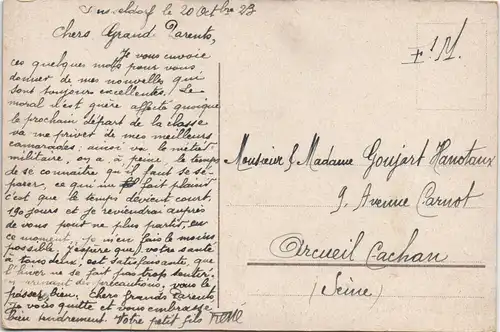 Dusseldorf le 20 Octbre 23
Chers Grand Parents,
Je vous envoie
ces quelques mots pour vous
donner de mes nouvelles qui
sont toujours excellentes. Le
moral n'est guère affecté quoique
le prochain départ de la classe
va me priver de mes meilleurs
camarades; ainsi va le métier
militaire, on a, à peine, le temps
de se connaître qu'il faut se sé-
parer, ce qui me fait plaisir
c'est que le temps devient court,
190 jours et je reviendrai auprès
de vous pour ne plus partir, en
ce moment, je m'en fais le moins
possible. J'espère que votre santé
à tous deux, est satisfaisante, que
l'hiver ne se fait pas trop sentir,
prenant des précautions, vous le
passez bien. Chers Grands Parents,
je vous quitte et vous embrasse
bien tendrement. Votre petit fils
+ 1M.
Monsieur & Madame Goujart Hanotaux
9. Avenue Carnot
Arcueil Cachan
(Seine)